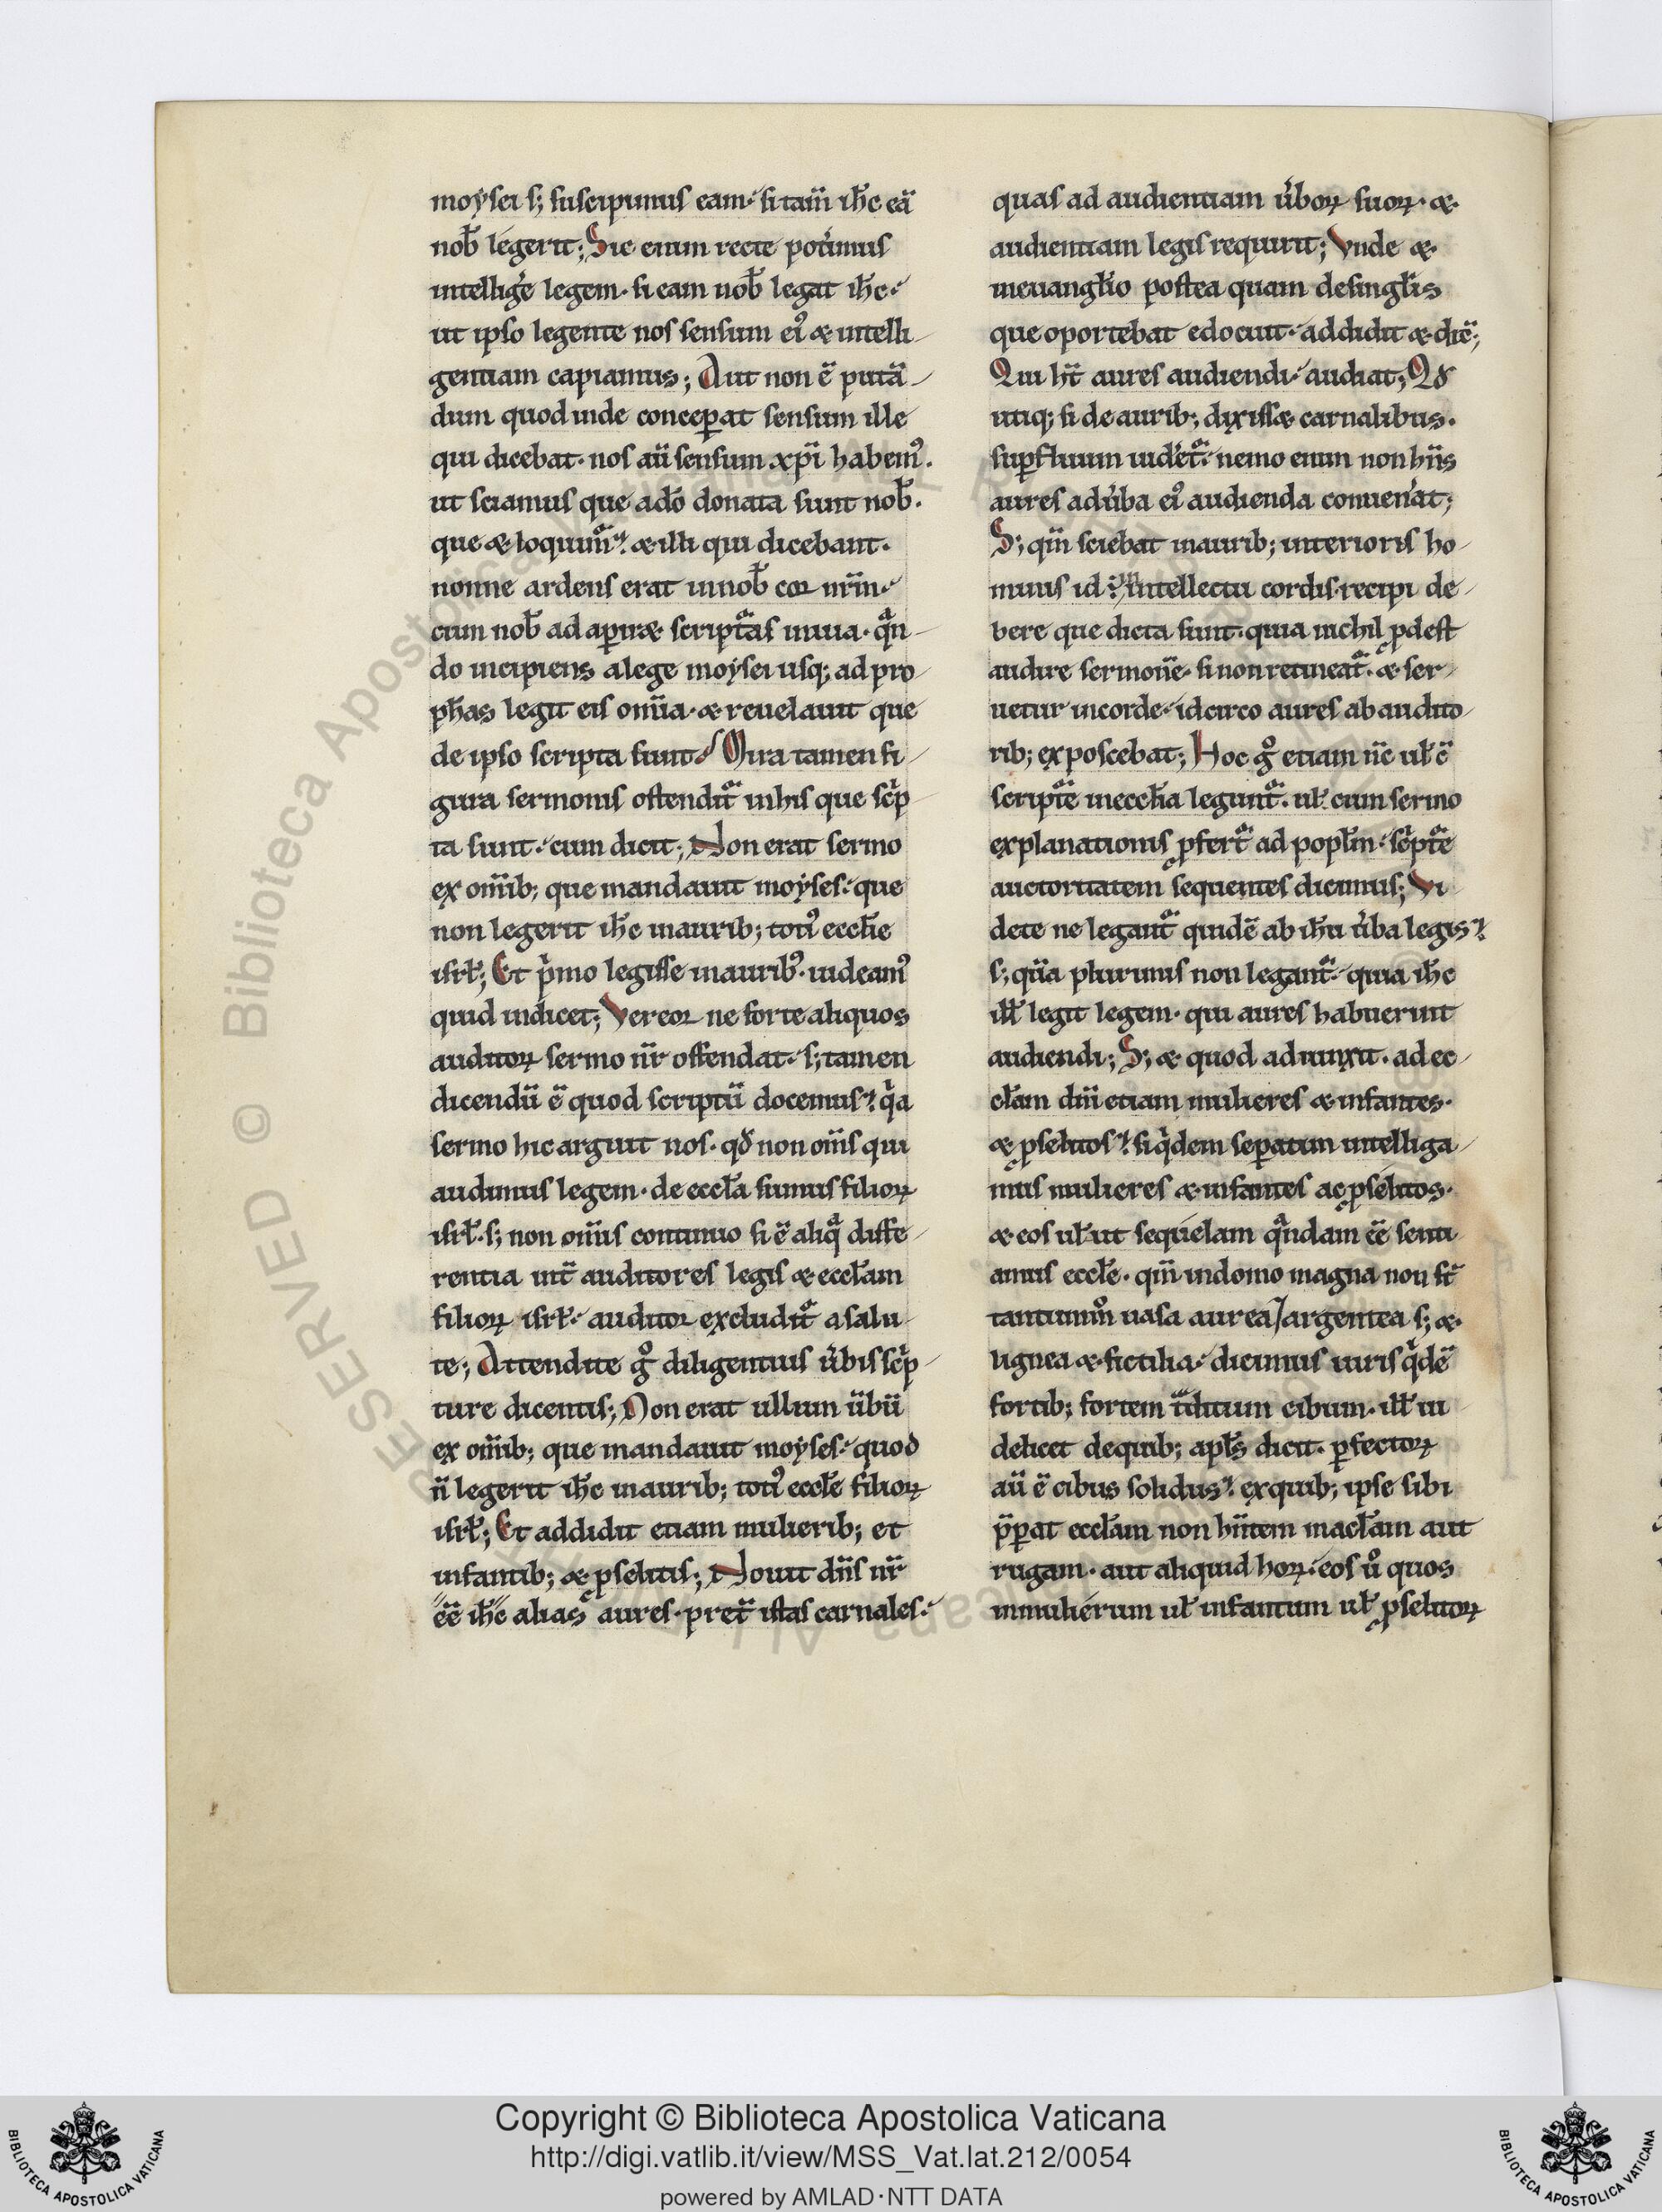 moysei s; suscipimus eam. si tam̄ ih̄c eā
nob̄ legerit; Sic enim recte poterimus
intelligˀe legem. si eam nob̄ legat ih̄c.
ut ipso legente nos sensum eiꝰ & intelli
gentiam capiamus; Aut non ē putā
dum quod inde conceꝑat sensum ille
qui dicebat. nos aū sensum xp̄i habemꝰ.
ut sciamus que a do̅ donata sunt nob̄.
que & loquimͬ. & illi qui dicebant.
nonne ardens erat in nob̄ cor nr̄m.
cum nob̄ adaꝑir& scriptͣas in uia. qͣn
do incipiens a lege moysei usq; ad pro
ph̄as legit eis om̄ia. & reuelauit que
de ipso scripta sunt. Mira tamen fi
gura sermonis ostenditͬ in his que scͥp
ta sunt. cum dicit; Non erat sermo
ex om̄ib; que mandauit moyses. que
non legerit ih̄c in aurib; totiꝰ eccl̄ie
isrl̄; Et pͥmo legisse in auribꝰ. uideamꝰ
quid indicet; Vereor ne forte aliquos
auditoꝝ sermo nr̄ offendat. s; tamen
dicendū ē quod scriptū docemus. qͥa
sermo hic arguit nos. qđ non om̄s qui
audimus legem. de eccl̄a sumus filioꝝ
isrl̄. s; non om̄is continuo si ē aliqͣ diffe
rentia int̄ auditores legis & eccl̄am
filioꝝ isrl̄. auditor excluditͬ a salu
te; Attendite gͦ diligentius ūbis scͥp
ture dicentis; Non erat ullum ūbū
ex om̄ib; que mandauit moyses. quod
n̄ legerit ih̄c in aurib; totiꝰ eccl̄e filioꝝ
isrl̄; Et addidit etiam mulierib; et
infantib; & ꝓselitis; Nouit dn̄s nr̄
eē ih̄c alias aures. pret̄ istas carnales.
quas ad audientiam ūboꝝ suoꝝ. &
audientiam legis requirit; Vnde &
in euangl̄io postea quam de singl̄is
que oportebat edocuit. addidit & dic̄;
Qui ht̄ aures audiendi. audiat; Qđ
utiq; si de aurib; dixiss& carnalibus.
suꝑfluum uidˀetͬ. nemo enim non hn̄s
aures ad ūba eiꝰ audienda conuenˀat;
S; qm̄ sciebat in aurib; interioris ho
minis id ÷ in intellectu cordis recipi de
bere que dicta sunt. quia nichil ꝓdest
audire sermonē. si non retineatͬ. & ser
uetur in corde. idcirco aures ab audito
rib; exposcebat; Hoc gͦ etiam nc̄ ul̄ c̄
scriptͬe in eccl̄ia leguntͬ. ul̄ cum sermo
explanationis ꝓfertͬ ad popl̄m. scͥptͬe
auctoritatem sequentes dicimus; Vi
dete ne legantͬ quidē ab ih̄u ūba legis.
s; qͣ a plurimis non legantͬ. quia ih̄c
ill̄ legit legem. qui aures habuerunt
audiendi; S; & quod adiunxit. ad ec
cl̄am dn̄i etiam mulieres & infantes.
& ꝓselitos. siqͥdem seꝑatim intelliga
mus mulieres & infantes ac ꝓselitos.
& eos ul̄ ut sequelam qͣndam eē senti
amus eccl̄e. qm̄ in domo magna non st̄
tantummͦ uasa aurea / argentea s; &
lignea & fictilia. dicimus uiris qͥdē
fortib; fortem tͣditum cibum. ill̄ ui
delicet de quib; apl̄s dicit. ꝑfectoꝝ
aū ē cibus solidus. ex quib; ipse sibi
p̄ꝑat eccl̄am non hn̄tem macl̄am aut
rugam. aut aliquid hoꝝ. eos ūͦ quos
in mulierum ul̄ infantum ul̄ ꝓselitoꝝ
Copyright © Biblioteca Apostolica Vaticana
http://digi.vatlib.it/view/MSS_Vat.lat.212/0054
powered by AMLAD·NTT DATA
BIBLIOTECA APOSTOLICA VATICANA
BIBLIOTECA APOSTOLICA VATICANA